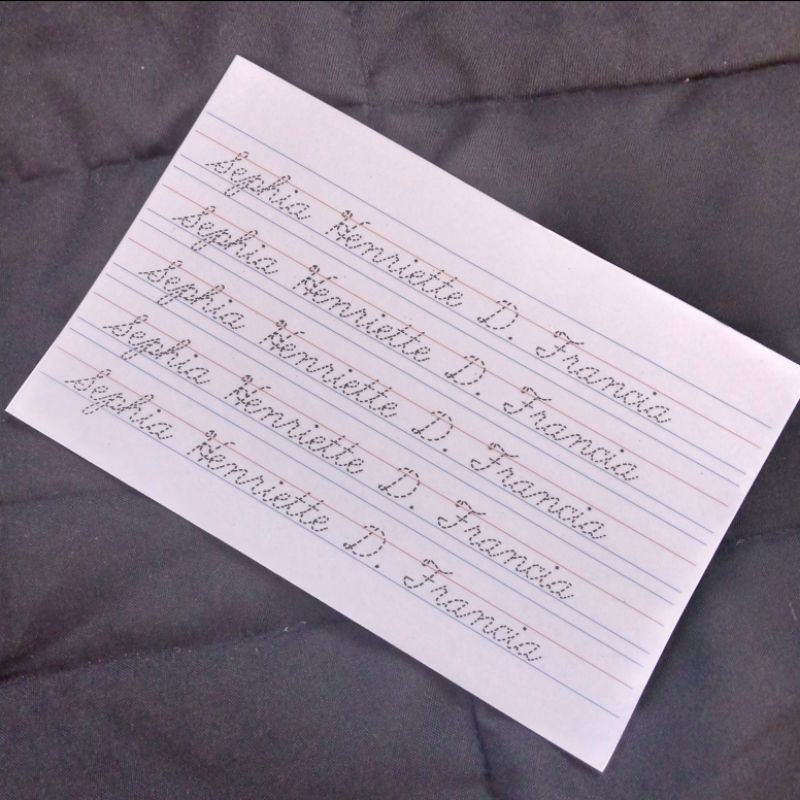 Sophia Henriette D. Francia
Sophia Henriette D. Francia
Sophia Henriette D. Francia
Sophia Henriette D. Francia
Sophia Henriette D. Francia